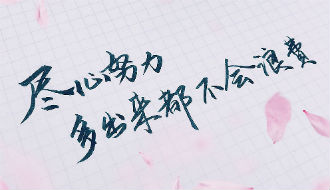 尽心努力
多出来都不会浪费